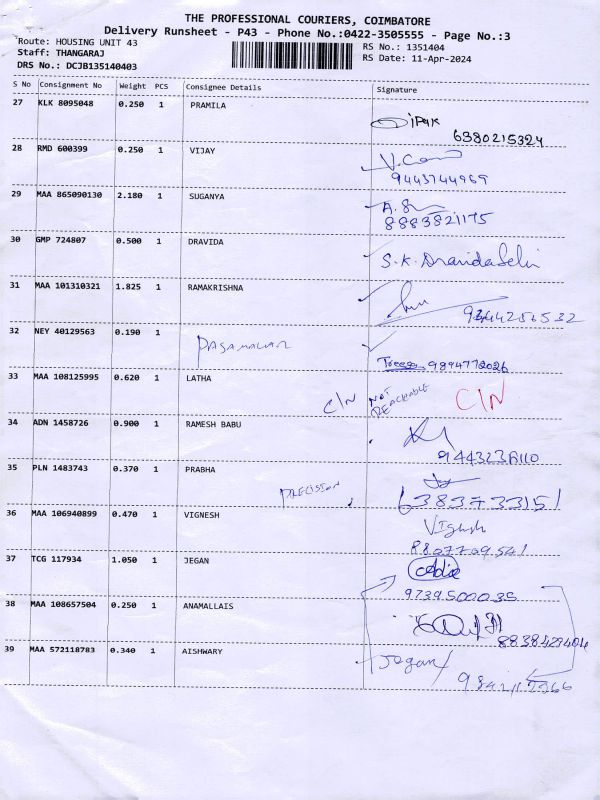 THE PROFESSIONAL COURIERS, COIMBATORE
Delivery Runsheet - P43 - Phone No.:0422-3505555 - Page No.:3
Route: HOUSING UNIT 43 RS No.: 1351404
Staff: THANGARAJ RS Date: 11-Apr-2024
DRS No.: DCJB135140403
S No Consignment No Weight PCS Consignee Details Signature
27 KLK 8095048 0.250 1 PRAMILA
6380215324
28 RMD 600399 0.250 1 VIJAY
9443744969
29 MAA 865090130 2.180 1 SUGANYA
8883821175
30 GMP 724807 0.500 1 DRAVIDA
S.K. DravidaSelvi
31 MAA 101310321 1.825 1 RAMAKRISHNA
32 NEY 40129563 0.190 1
9894772026
33 MAA 108125995 0.620 1 LATHA
C/N NOT REACHABLE C/N
34 ADN 1458726 0.900 1 RAMESH BABU
35 PLN 1483743 0.370 1 PRABHA
PRECISION 6383733151
36 MAA 106940899 0.470 1 VIGNESH
Vignesh
37 TCG 117934 1.050 1 JEGAN
9739500035
38 MAA 108657504 0.250 1 ANAMALLAIS
8838423404
39 MAA 572118783 0.340 1 AISHWARY
Jegan